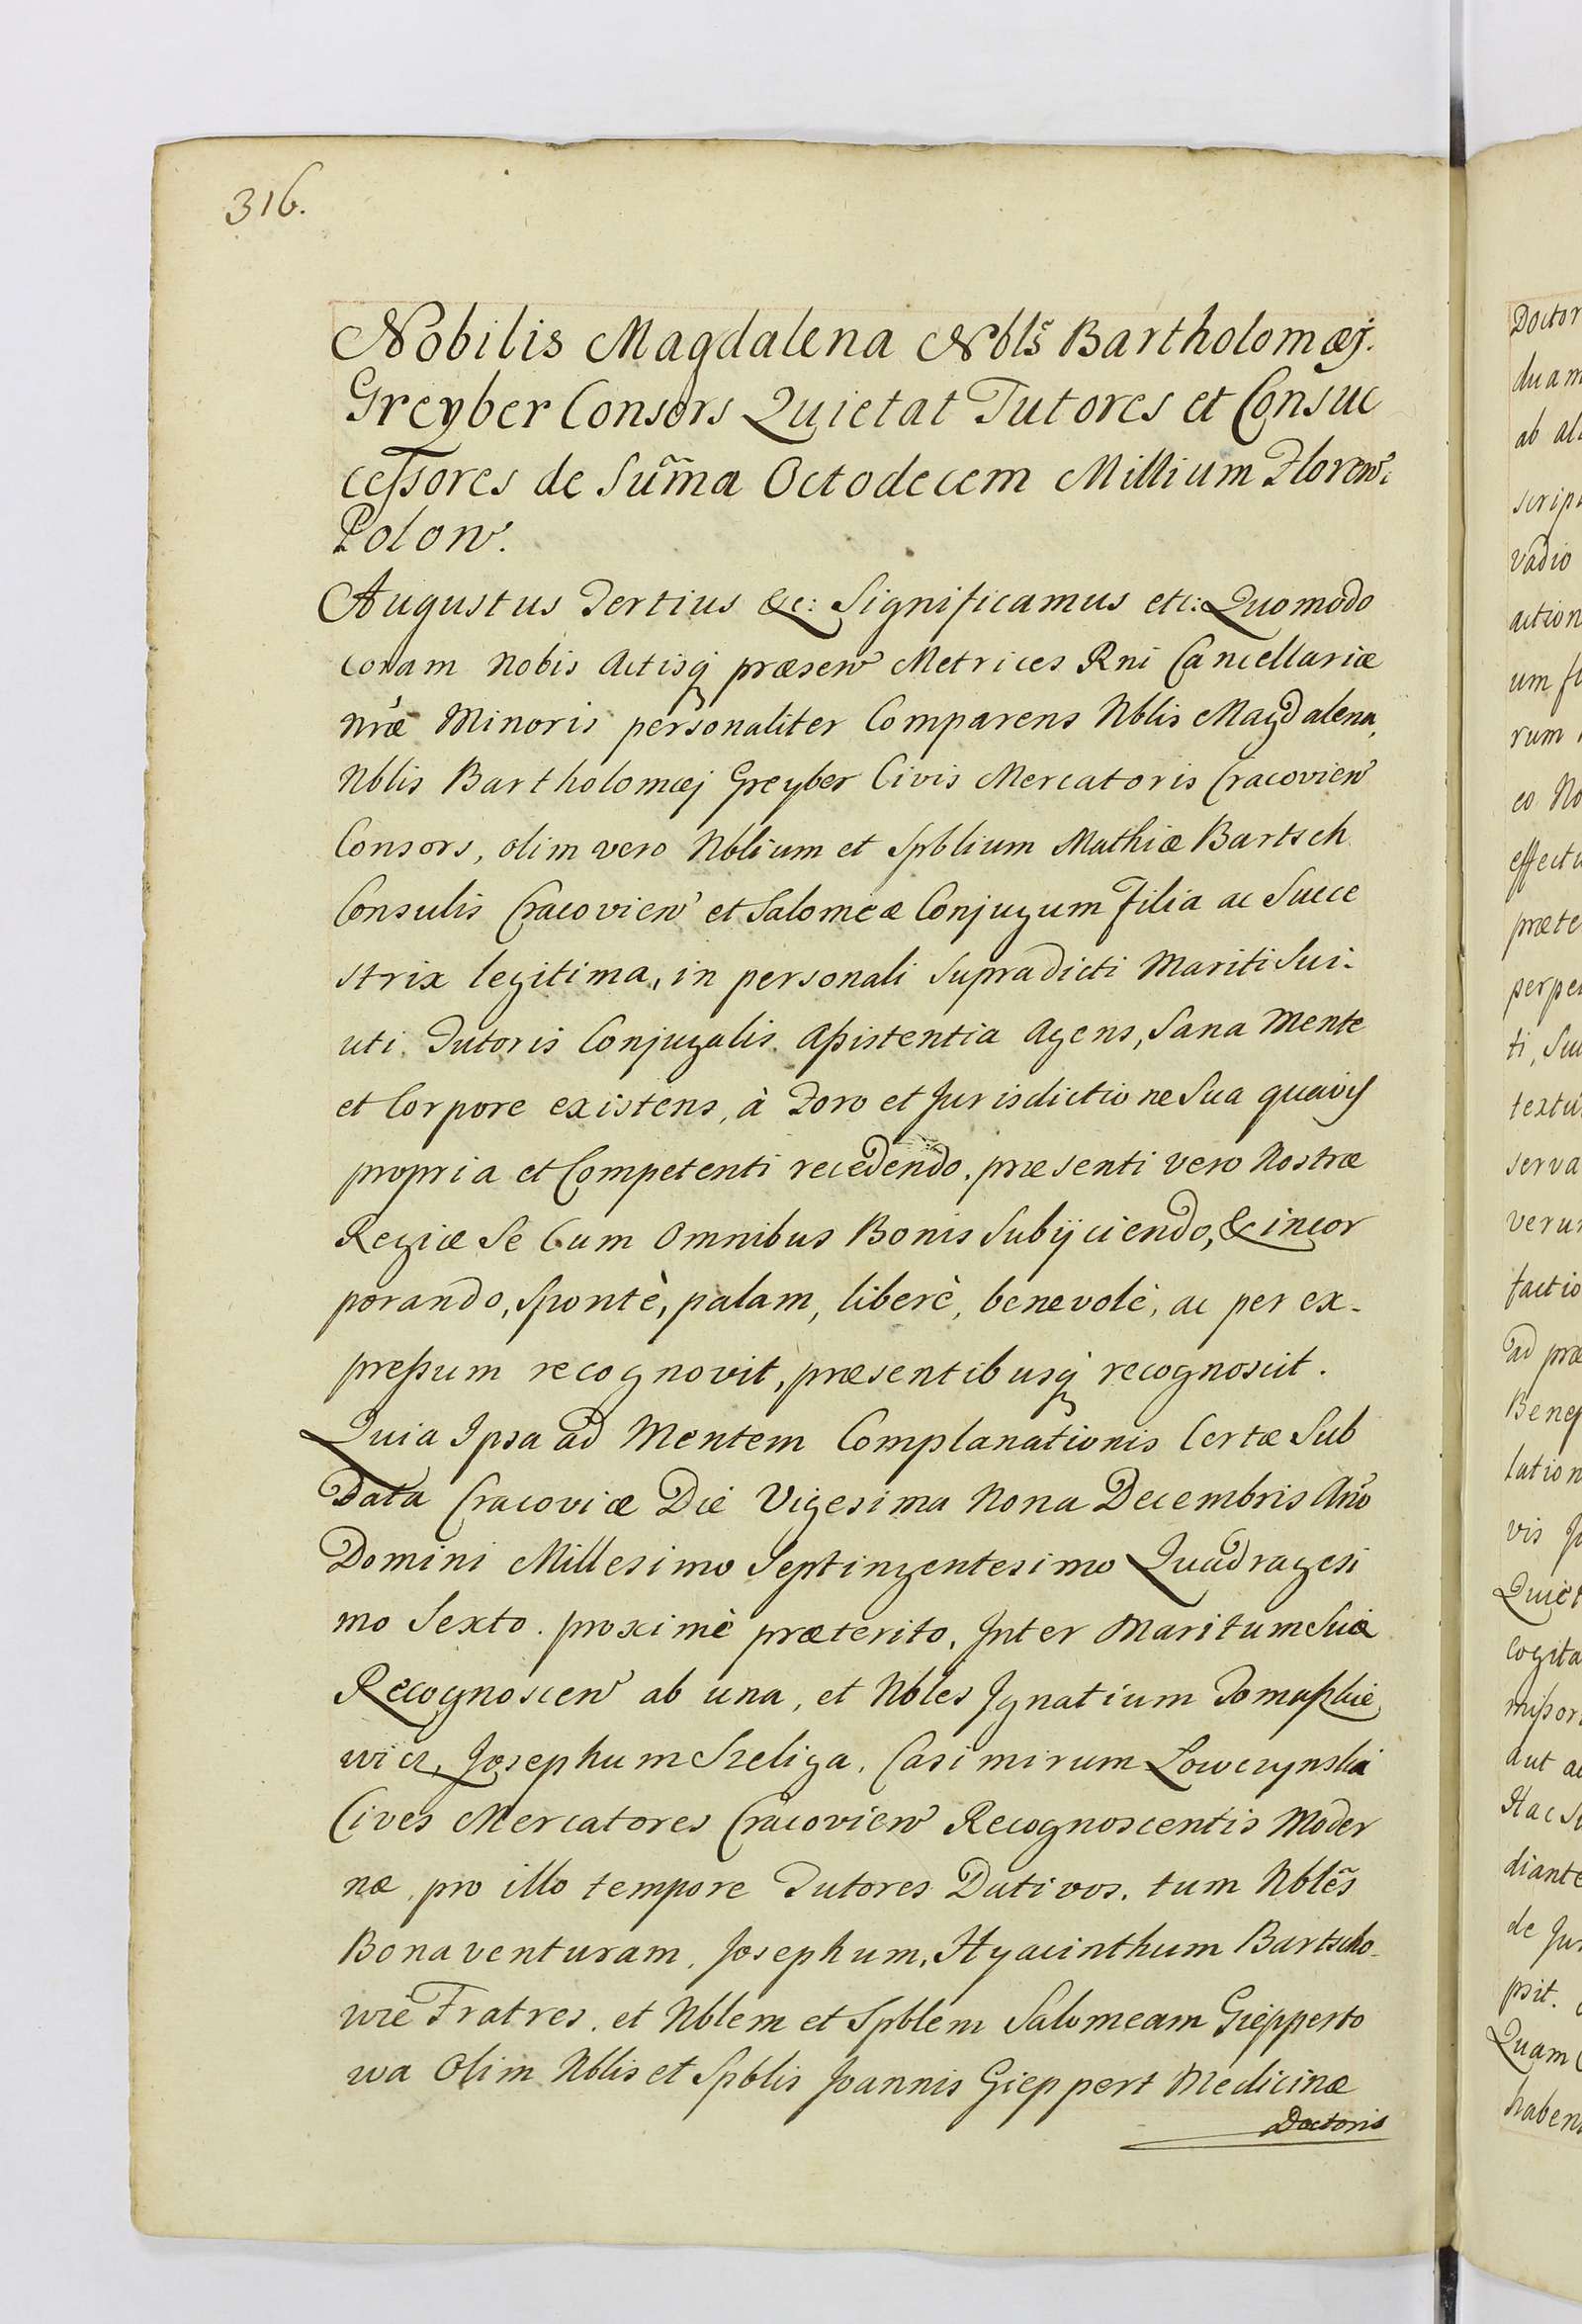 316.
Nobilis Magdalena Nbls̃ Bartholomæj.
Greyber Consors Quietat Tutores et Consuc
cessores de Sum̃a Octodecem Millium Floren:
Polon.
Augustus Tertius &c: Significamus etc: Quomodo
coram Nobis Actisq præsen Metrices Rni Cancellariæ
nræ Minoris personaliter Comparens Nblis Magdalena,
Nblis Bartholomæj Greyber Civis Mercatoris Cracovien
Consors, olim vero Nblium et Spblium Mathiæ Bartsch
Consulis Cracovien et Salomeæ Conjugum Filia ac Succe
strix legitima, in personali supradicti Mariti Sui.
uti Tutoris Conjugalis Assistentia Agens, Sana Mente
et Corpore existens, à Foro et Jurisdictione Sua quavis
propria et Competenti recedendo. præsenti vero Nostræ
Regiæ Se Cum Omnibus Bonis Subijciendo, & incor
porando, Spontè, palam, liberè, benevolè, ac per ex-
pressum recognovit, præsentibusq recognoscit.
Quia Ipsa ad Mentem Complanationis Certæ Sub
Data Cracoviæ Die Vigesima Nona Decembris Año
Domini Millesimo Septingentesimo Quadragesi
mo Sexto. proximè præterito, Inter Maritum Suæ
Recognoscen ab una, et Nbles Ignatium Tomaszkie
wicz, Josephum Szeliga, Casimirum Lowczynski
Cives Mercatores Cracovien Recognoscentis Moder
næ, pro illo tempore Tutores Dativos, tum Nblẽs
Bonaventuram, Josephum, Hyacinthum Bartscho-
wie Fratres, et Nblem et Spblem Salomeam Giepperto
wa Olim Nblis et Spblis Joannis Gieppert Medicinæ
Doctoris
Doctor
ab
vadio
action
rum
co No
perpe
ti, Su
serva
factio
ad præ
lation
vis
Quiet
cogita
aut
Hac
diante
de
psit.
Quam
haben